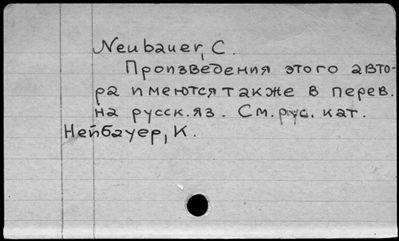 Neubauer, C.
Произведения этого авто-
ра имеются также в перев.
на русск. яз. См. рус. кат.
Нейбауер, К.